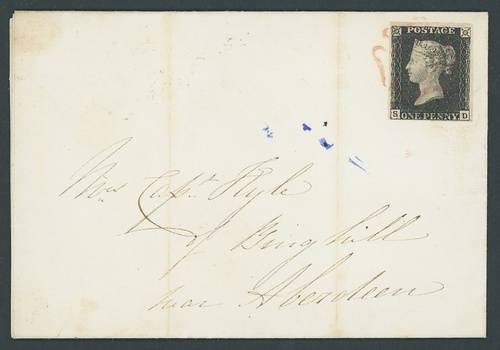 POSTAGE
S D
ONE PENNY
Mrs Capt Kyle
of Binghill
near Aberdeen